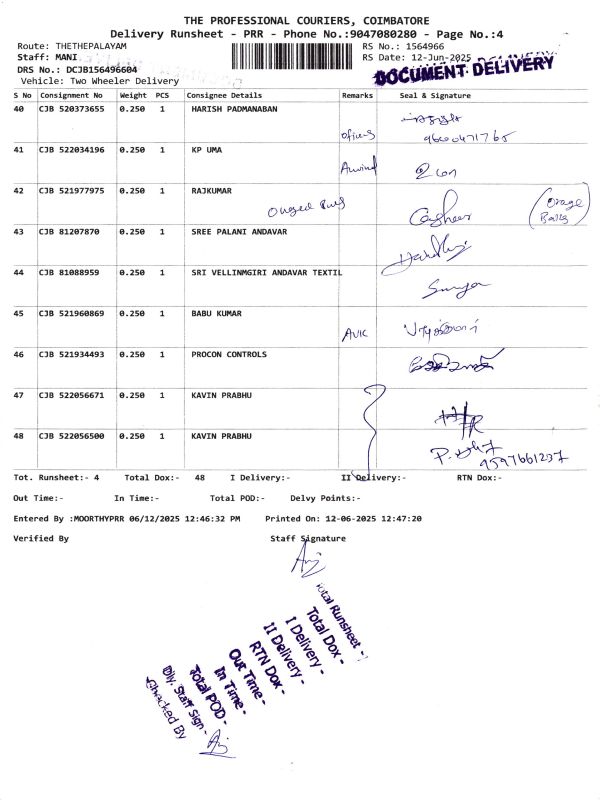 THE PROFESSIONAL COURIERS, COIMBATORE
Delivery Runsheet - PRR - Phone No.:9047080280 - Page No.:4
Route: THETHEPALAYAM RS No.: 1564966
Staff: MANI RS Date: 12-Jun-2025
DRS No.: DCJB156496604
Vehicle: Two Wheeler Delivery
DOCUMENT DELIVERY
S No Consignment No Weight PCS Consignee Details Remarks Seal & Signature
40 CJB 520373655 0.250 1 HARISH PADMANABAN
9600471765
41 CJB 522034196 0.250 1 KP UMA
Arwind உமா
42 CJB 521977975 0.250 1 RAJKUMAR
Cashier
43 CJB 81207870 0.250 1 SREE PALANI ANDAVAR
44 CJB 81088959 0.250 1 SRI VELLINMGIRI ANDAVAR TEXTIL
Surya
45 CJB 521960869 0.250 1 BABU KUMAR
46 CJB 521934493 0.250 1 PROCON CONTROLS
47 CJB 522056671 0.250 1 KAVIN PRABHU
48 CJB 522056500 0.250 1 KAVIN PRABHU
9597661237
Tot. Runsheet:- 4 Total Dox:- 48 I Delivery:- II Delivery:- RTN Dox:-
Out Time:- In Time:- Total POD:- Delvy Points:-
Entered By :MOORTHYPRR 06/12/2025 12:46:32 PM Printed On: 12-06-2025 12:47:20
Verified By Staff Signature
Total Runsheet -
Total Dox -
I Delivery -
II Delivery -
RTN Dox -
Out Time -
In Time -
Total POD -
Dly. Staff Sign -
Checked By